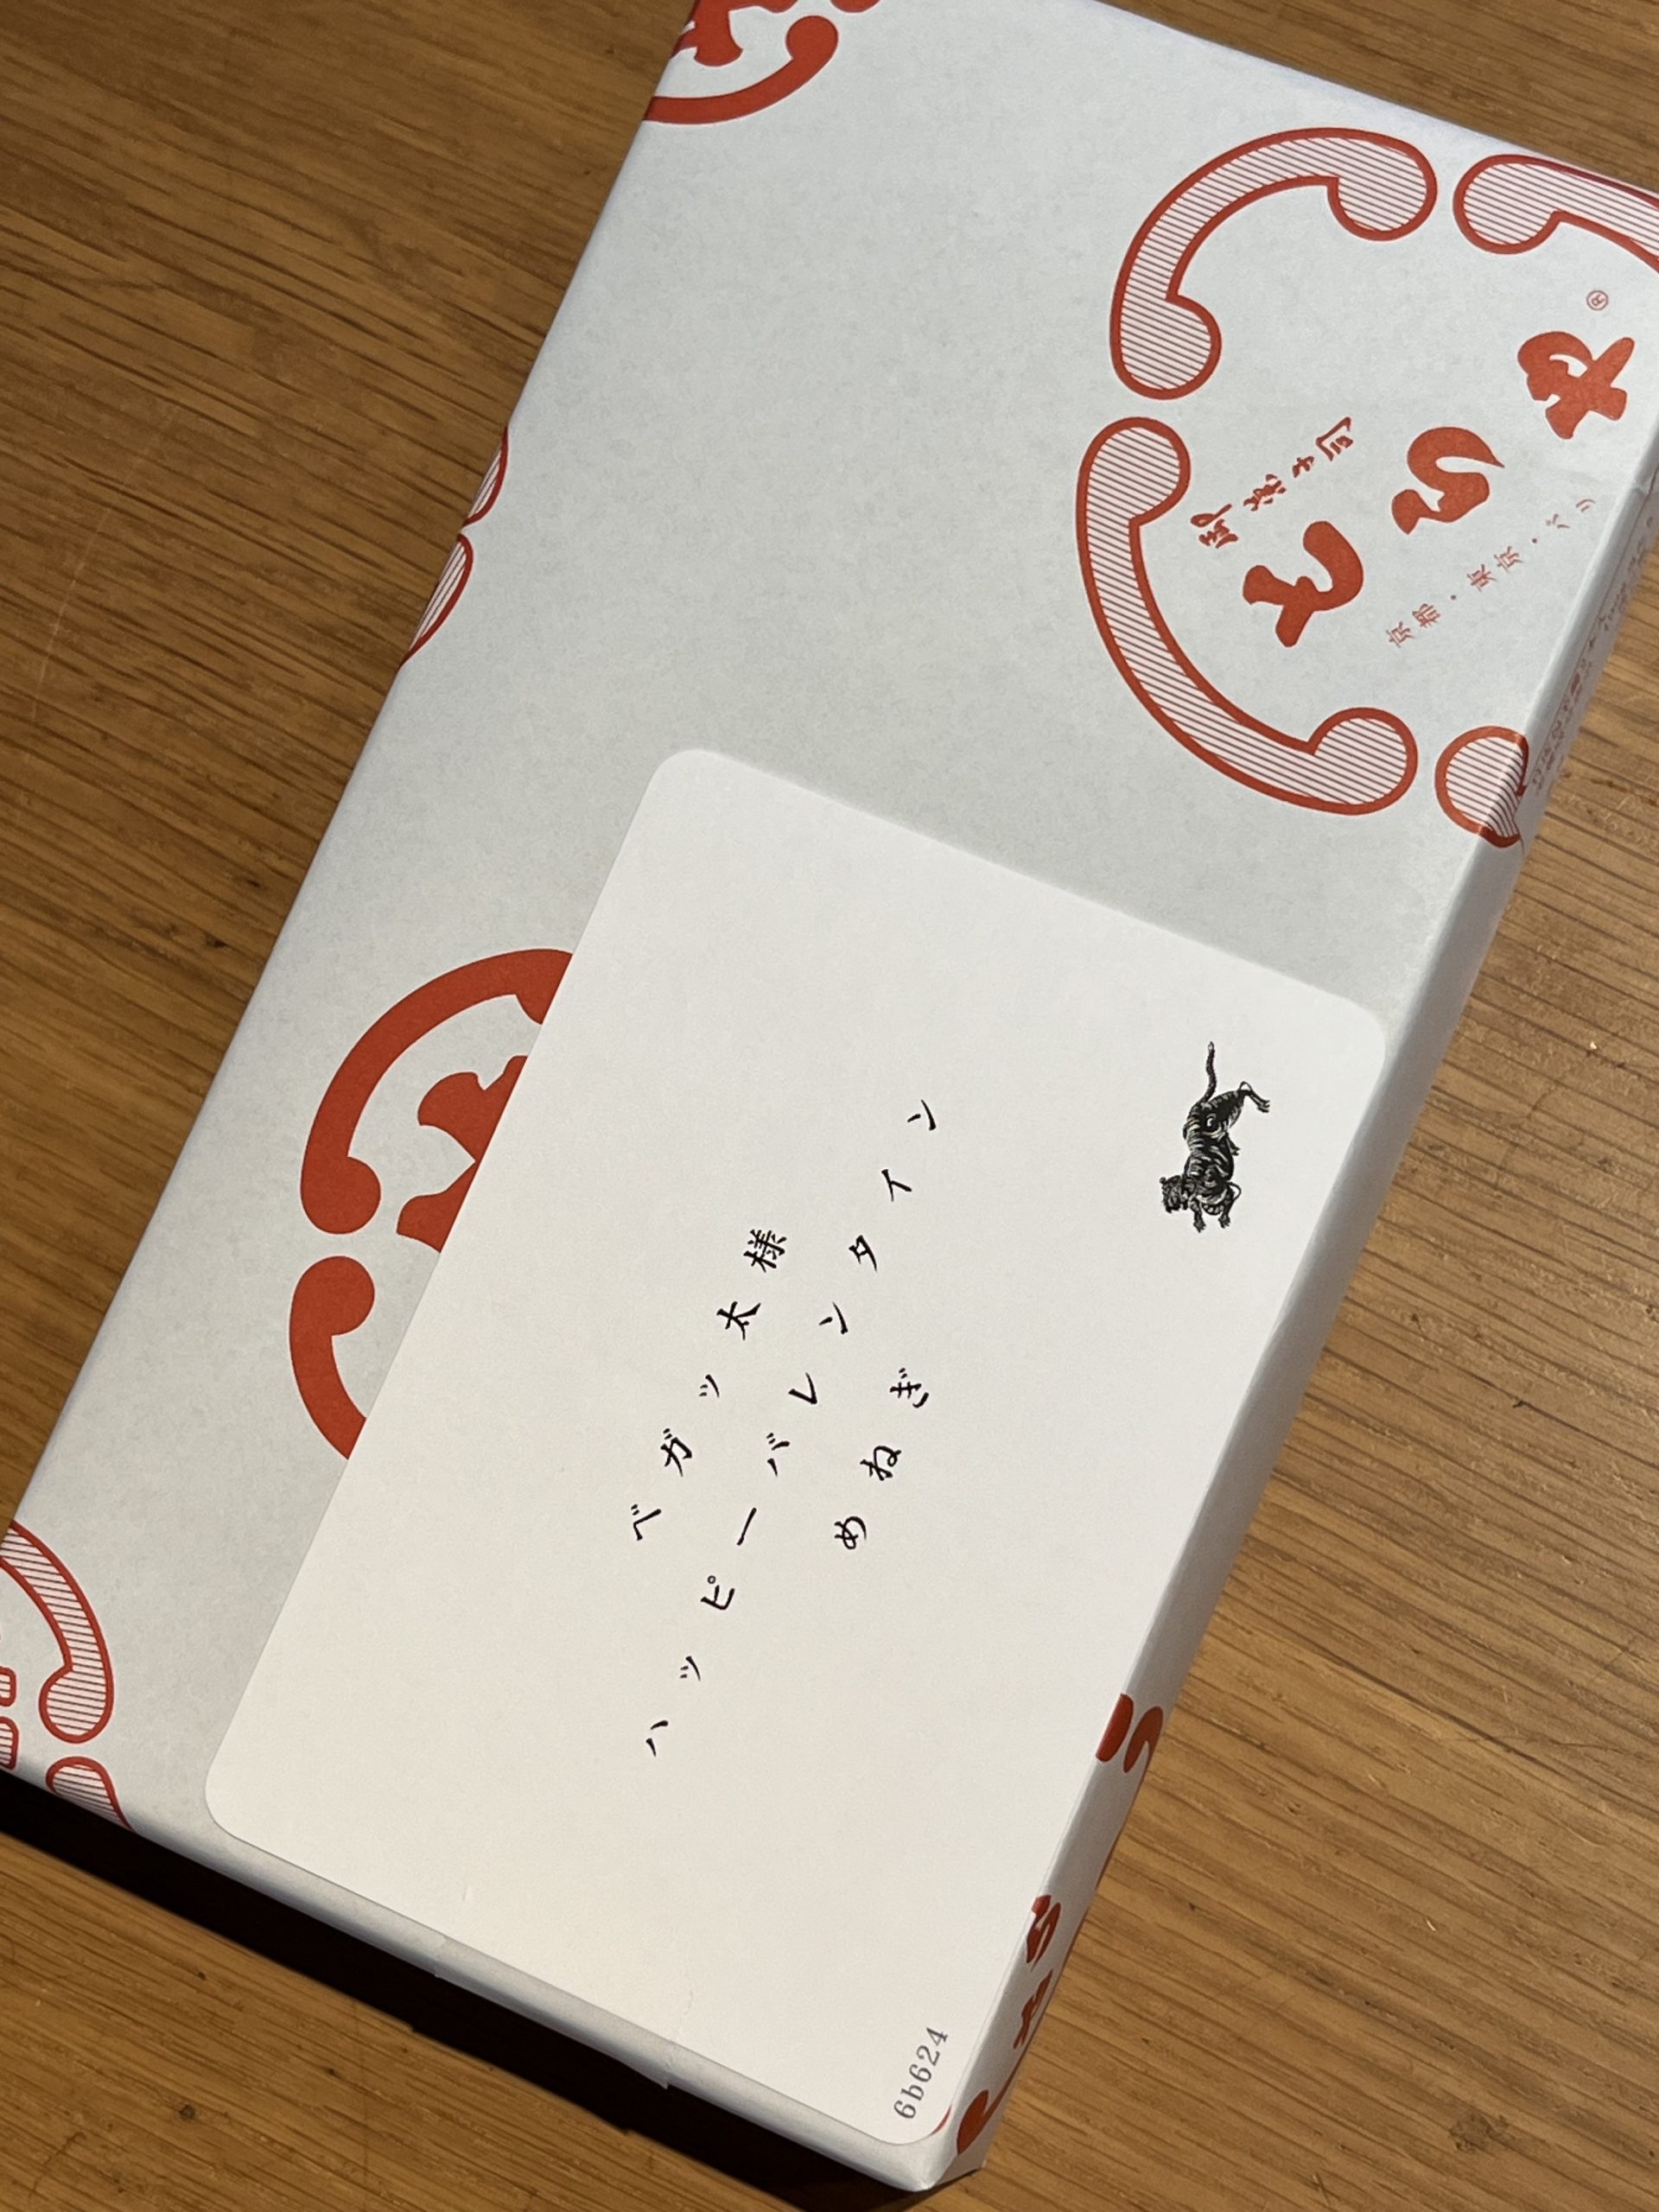 御菓子司
とらや®
京都・東京・パリ
ベガッ太様
ハッピーバレンタイン
めねぎ
6b624
らや